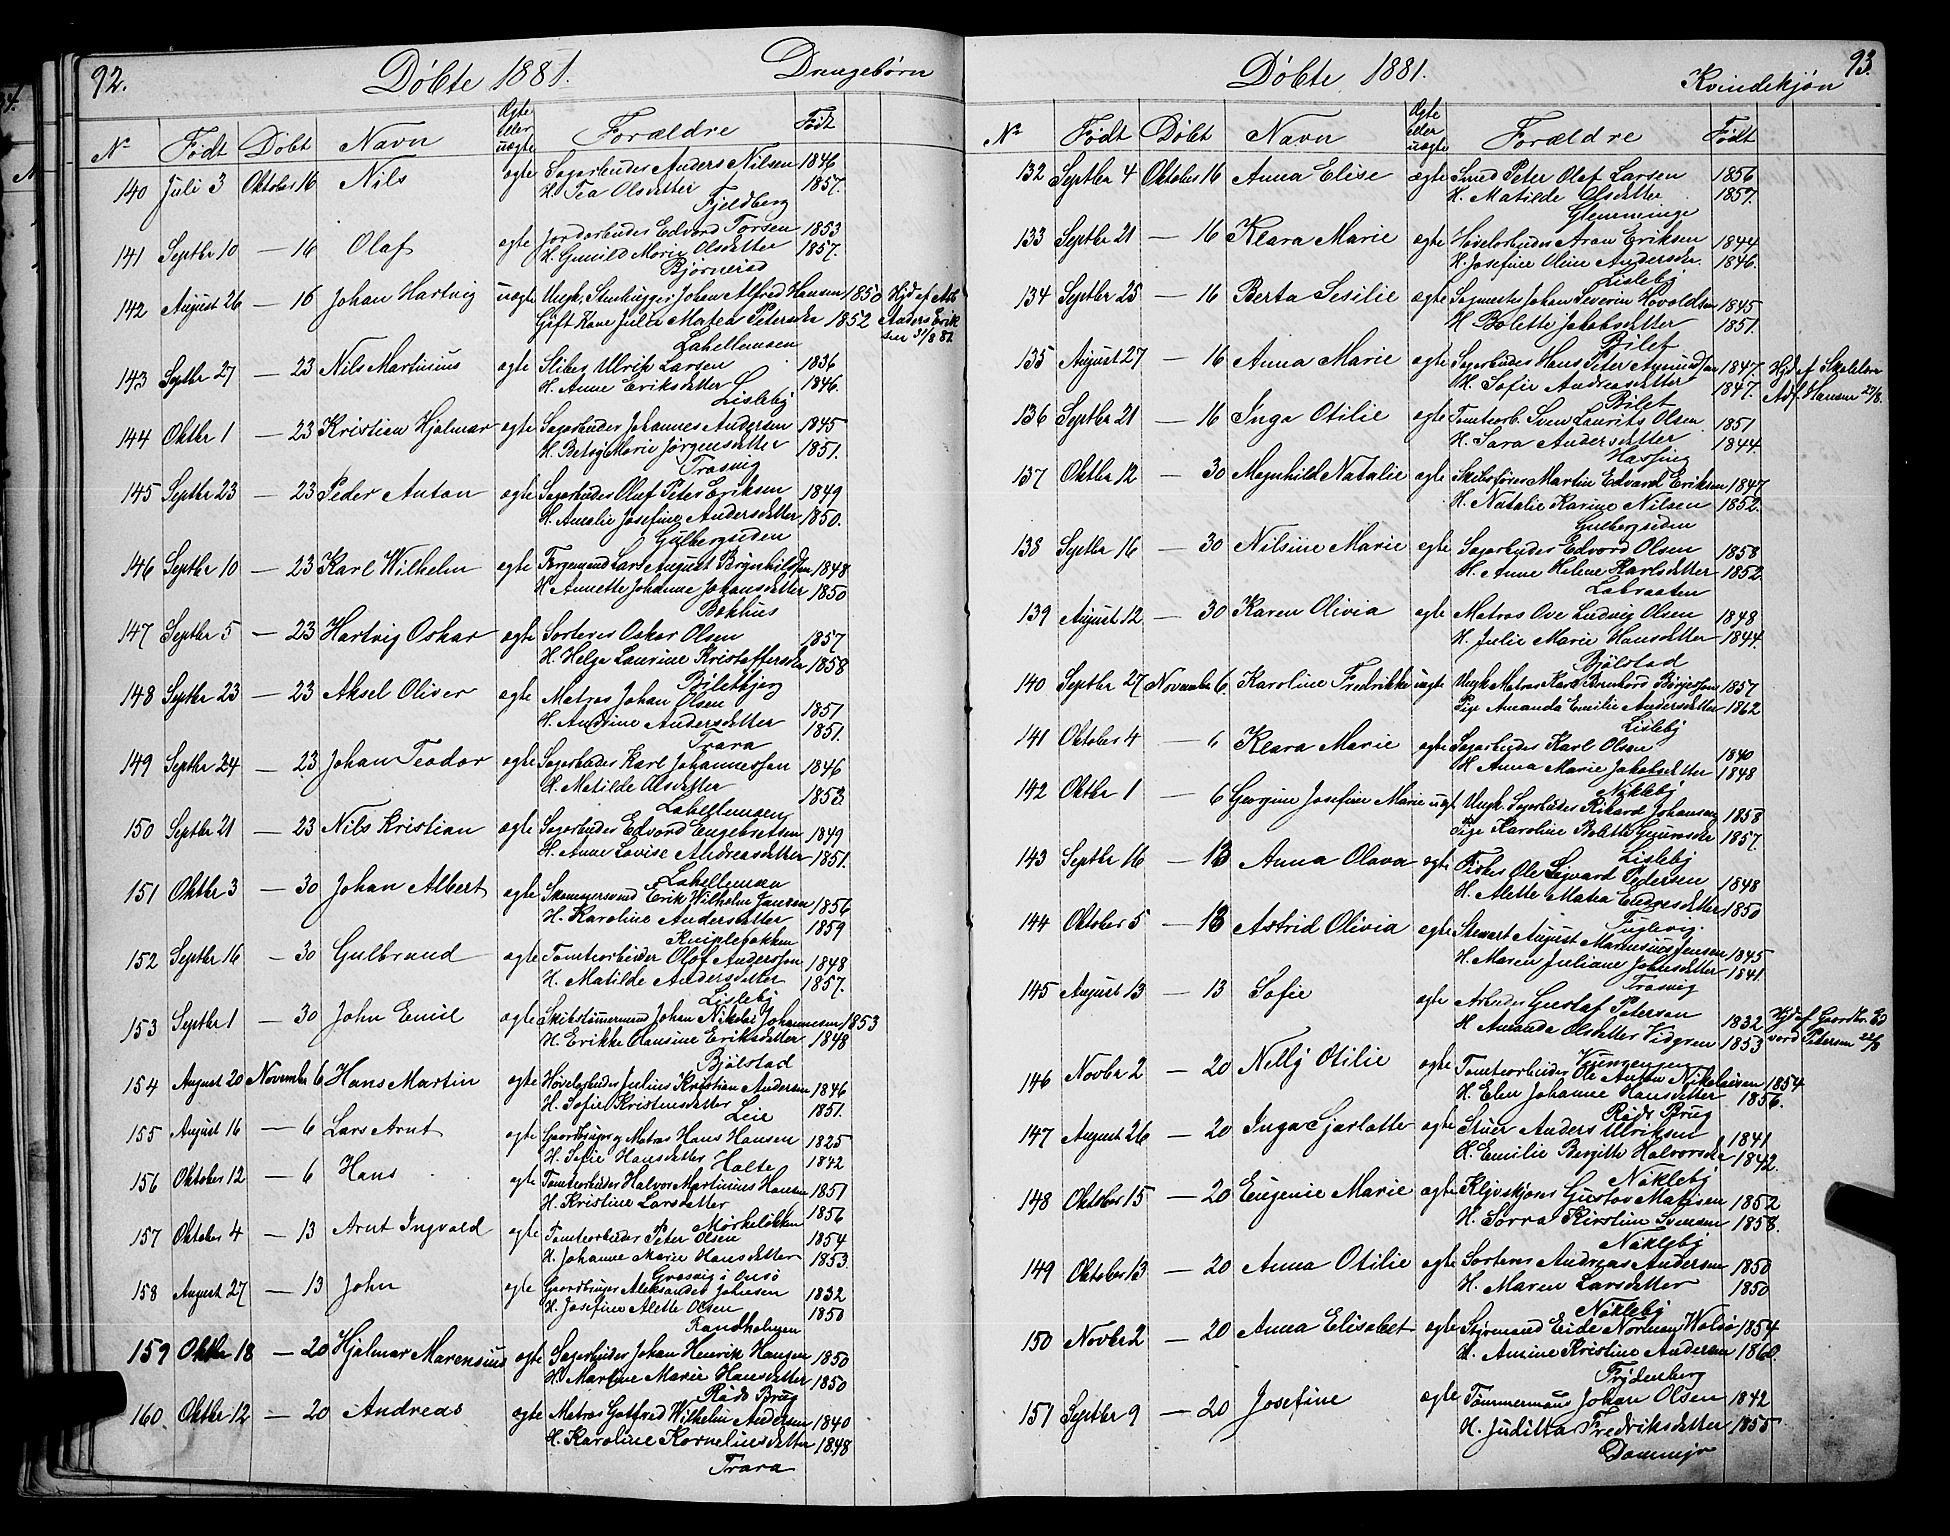 92. Döbte 1881. Drengebørn
No Født Døbt Navn Ægte eller uægte Forældre Født
140 Juli 3 Oktober 16 Nils ægte Sagarbeider Anders Nilsen 1846
H. Tea Olsdatter 1857.
Fjeldberg
141 Septbr 10 — 16 Olaf ægte Jordarbeider Edvard Torsen 1853
H. Gunild Marie Olsdatter 1857.
Bjørnerød
142 August 26 — 16 Johan Hartvig uægte Ungk. Stenhugger Johan Alfred Hansen 1850 Hjd af Arb
Gift Kone Julia Matea Petersdtr 1852 Anders Erik
Lahellemoen sen 31/8 81
143 Septbr 27 — 23 Nils Martinius ægte Sliber Ulrik Larsen 1836
H. Anne Eriksdatter 1846.
Lisleby
144 Oktbr 1 — 23 Kristian Hjalmar ægte Sagarbeider Johannes Andersen 1845
H. Betsy Marie Jørgensdatter 1851.
Trosvig
145 Septbr 23 — 23 Peder Anton ægte Sagarbeider Olaf Peter Eriksen 1849
H. Amalie Josefine Andersdatter 1850.
Gulbergsiden
146 Septbr 10 — 23 Karl Wilhelm ægte Færgemand Lars August Brynhildsen 1848
H. Annette Johanne Johansdatter 1850
Bakhus
147 Septbr 5 — 23 Hartvig Oskar ægte Sorterer Oskar Olsen 1857
H. Helga Laurine Kristoffersdtr 1858
Biletbjerg
148 Septbr 23 — 23 Aksel Oliver ægte Matros Johan Olsen 1851
H. Andrine Andersdatter 1851.
Trara
149 Septbr 24 — 23 Johan Teodor ægte Sagarbeider Karl Johannessen 1846
H. Matilde Olsdatter 1853.
Lahellemoen
150 Septbr 21 — 23 Nils Kristian ægte Sagarbeider Edvard Engebretsen 1849
H. Anne Lovise Andreasdatter 1851.
Lahellemoen
151 Oktbr 3 — 30 Johan Albert ægte Skomagersvend Erik Wilhelm Jansen 1856
H. Karoline Andersdatter 1859
Kniplebakken
152 Septbr 16 — 30 Gulbrand ægte Tomtearbeider Olof Anderssen 1848
H. Matilde Andersdatter 1857.
Lisleby
153 Septbr 1 — 30 John Emil ægte Skibstømmermand Johan Nikolai Johannesen 1853
H. Erikke Hansine Eriksdatter 1848
Bjølstad
154 August 20 November 6 Hans Martin ægte Høvelarbeider Julius Kristian Andersen 1846
H. Sofie Kristensdatter 1851.
Leie
155 August 16 — 6 Lars Arnt ægte Gaardbruger og Matros Hans Hansen 1825
H. Sofie Hansdatter Holte 1842
156 Oktober 12 — 6 Hans ægte Tomtearbeider Halvor Martinius Hansen 1851
H. Kristine Larsdatter 1856
Mørkeløkken
157 Oktober 4 — 13 Arnt Ingvald ægte Tomtearbeider Peter Olsen 1854
H. Johanne Marie Hansdatter 1853.
Græsvig i Onsø
158 August 27 — 13 John ægte Gaardbruger Aleksander Johnsen 1832
H. Josefine Alette Olsen 1850
Randhaugen
159 Oktbr 18 — 20 Hjalmar Marensius ægte Sagarbeider Johan Henrik Hansen 1850
H. Martine Marie Hansdatter 1850
Røds Brug
160 Oktbr 12 — 20 Andreas ægte Matros Gotfred Wilhelm Andersen 1840
H. Karoline Korneliusdatter 1848
Trara
Döbte 1881. Kvindekjøn 93.
No Født Døbt Navn Ægte eller uægte Forældre Født
132 Septbr 4 Oktober 16 Anna Elise ægte Smed Peter Olaf Larsen 1856
H. Matilde Olsdatter 1857.
Glemminge
133 Septbr 21 — 16 Klara Marie ægte Høvelarbeider Aron Eriksen 1844
H. Josefine Oline Andersdtr. 1846.
Lisleby
134 Septbr 25 — 16 Berta Sesilie ægte Sagmester Johan Severin Hovoldsen 1845
H Bolette Jakobsdatter 1851.
Bilet
135 August 27 — 16 Anna Marie ægte Sagarbeider Hans Peter Amundsen 1847. Hjd af Skolelærer
H. Sofie Andreasdatter 1847. Adf. Hansen 27/8.
Bilet
136 Septbr 21 — 16 Inga Otilie ægte Tomtearb. Sven Laurits Olsen 1851
H. Sara Andersdatter 1844.
Hassing
137 Oktbr 12 — 30 Magnhild Natalie ægte Skibsfører Martin Edvard Eriksen 1847
H. Natalie Karine Nilsen 1852.
Gulbergsiden
138 Septbr 16 — 30 Nilsine Marie ægte Sagarbeider Edvard Olsen 1858
H. Anne Helene Karlsdatter 1852
Labraaten
139 August 12 — 30 Karen Olivia ægte Matros Ove Ludvig Olsen 1848
H. Julie Marie Hansdatter 1844.
Bjølstad
140 Septbr 27 November 6. Karoline Fredrikke uægte Ungk. Matros Karl Bernhard Børjesson 1857
Pige Amanda Emilie Andersdatter 1862
Lisleby
141 Oktober 4 — 6 Klara Marie ægte Sagarbeider Karl Olsen 1840
H Anna Marie Jakobsdatter 1848
Nøkleby
142 Oktbr 1 — 6 Georgine Josefine Marie uægt Ungk. Sagarbeider Rikard Johansen 1858
Pige Karoline Bolette Gunrosdtr 1857.
Lisleby
143 Septbr 16 — 13 Anna Olava ægte Fisker Ole Sigvard Pedersen 1848
H. Alette Matea Endresdatter 1850
Fuglevig.
144 Oktober 5 — 13 Astrid Olivia ægte Stewart August Magnusius Jensen 1845
H. Maren Juliane Johnsdatter 1841.
Trosvig
145 August 13 — 13 Sofie ægte Arbeider Gustaf Peterson 1832 Hjd af Gaardbr. Ed
H Amanda Olsdatter Vidgren 1853 vard Petersen 22/8
Kjungenjen
146 Novbr 2 — 20 Nelly Otilie ægte Tomtearbeider Ole Anton Nikolaisen 1854
H. Elen Johanne Hansdatter 1856.
Røds Brug
147 August 26 — 20 Inga Sjarlotte ægte Stuer Anders Ulriksen 1841
H. Emilie Bergitte Halvorsdtr 1842.
Nøkleby
148 Oktober 15 — 20 Eugenie Marie ægte Klyvskjører Gustav Matisen 1852
H. Sorra Kirstine Svensen 1858.
Nøkleby
149 Oktober 13 — 20 Anna Otilie ægte Sorterer Andreas Andersen 1850
H. Maren Larsdatter 1850
Nøkleby
150 Novbr 2 — 20 Anna Elisabet ægte Styrmand Eide Norman Walsø 1854
H. Amine Kristine Andersen 1860.
Frydenberg
151 Septbr 9 — 20 Josefine ægte Tømmermand Johan Olsen 1842
H. Juditta Fredriksdatter 1855
Dammyr